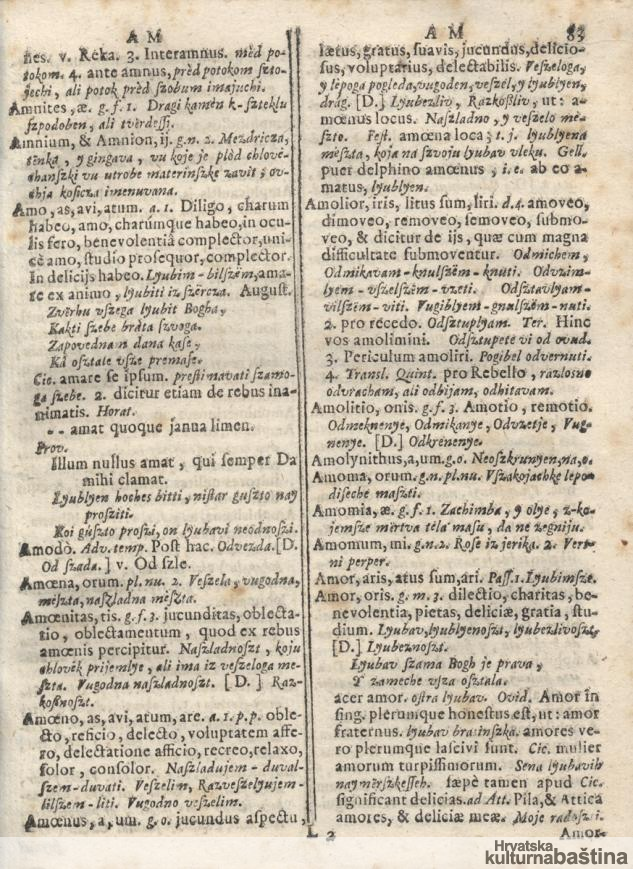 A M
nes. v. Rèka. 3. Interamnus. mèd po-
tokom. 4. ante amnus, prèd potokom szto-
jechi, ali potok prèd szobum imajuchi.
Amnites, æ. g. f. 1. Dragi kamèn k-szteklu
szpodoben, ali tvèrdessi.
Amnium, & Amnion, ij. g. n. 2. Mezdricza,
tènka, y gingava, vu koje je plòd chlovè-
chanszki vu utrobe materinszke zavit; ov-
chja kosicza imenuvana.
Amo, as, avi, atum. a. 1. Diligo, charum
habeo, vu, amo, charúmque habeo, in ocu-
lis fero, benevolentiâ complector, uni-
cè amo, studio prosequor, complector.
In delicijs habeo. Lyubim-bilszèm, ama-
re ex animo, lyubiti iz szèrcza. August.
Zvèrhu vszega lyubit Bogha,
Kakti szebe bràta szvoga.
Zapovednam dana kase,
Kâ osztale vsze premase.
Cic. amare se ipsum. prestimavati szamo-
ga szebe. 2. dicitur etiam de rebus ina-
nimatis. Horat.
-- amat quoque janua limen.
Prov.
Illum nullus amat, qui semper Da
mihi clamat.
Lyublyen hoches bitti, nistar guszto nay
prosziti.
Koi gúszto proszi, on lyubavi neodnoszi.
Amodò. Adv. temp. Post hac. Odvezda. [D.
Od szada.] v. Od szle.
Amœna, orum. pl. nu. 2. Veszela, vugodna,
mèszta, naszladna mèszta.
Amœnitas, tis. g. f. 3. jucunditas, oblecta-
tio, oblectamentum, quod ex rebus
amœnis percipitur. Naszladnoszt, koju
chlovèk prijemlye, ali ima iz veszeloga me-
szta. Vugodna naszladnoszt. [D.] Raz-
kosnoszt.
Amœno, as, avi, atum, are. a. 1. p. p. oble-
cto, reficio, delecto, voluptatem affe-
ro, delectatione afficio, recreo, relaxo,
solor, consolor. Naszladujem-duval-
szem-duvati. Veszelim, Razveszelyujem-
lilszèm-liti. Vugodno veszelim.
Amœnus, a, um. g. o. jucundus aspectu,
A M 83
lætus, gratus, suavis, jucundus, delicio-
sus, voluptarius, delectabilis. Veszeloga,
y lèpoga pogleda, vugoden, veszèl, y lyublyen,
dràg. [D.] Lyubezliv, Razkosliv, ut: a-
mœnus locus. Naszladno, y veszelo mè-
szto. Fest. amœna loca; t. j. lyublyena
mèszta, koja na szvoju lyubav vleku. Gell.
puer delphino amœnus, i. e. ab eo a-
matus, lyublyen.
Amolior, iris, litus sum, liri. d. 4. amoveo,
dimoveo, removeo, semoveo, submo-
veo, & dicitur de ijs, quæ cum magna
difficultate submoventur. Odmichem,
Odmikavam-knulszèm-knuti. Odvzim-
lyem-vszelszèm-vzeti. Odsztavlyam-
vilszèm-viti. Vugiblyem-gnulszèm-nuti.
2. pro recedo. Odsztuplyam. Ter. Hinc
vos amolimini. Odsztupete vi od ovud.
3. Periculum amoliri. Pogibel odvernuti.
4. Transl. Quint. pro Rebello, razlosno
odvracham, ali odbijam, odhitavam.
Amolitio, onis. g. f. 3. Amotio, remotio.
Odmeknenye, Odmikanye, Odvzetje, Vug-
nenye. [D.] Odkrènenye.
Amolynthus, a, um. g. o. Neoszkrunyen, na, o.
Amoma, orum. g. n. pl. nu. Vszakojachke lepo
diseche maszti.
Amomia, æ. g. f. 1. Zachimba, y olye, z-ko-
jemsze mèrtva tèla masu, da ne zegniju.
Amomum, mi. g. n. 2. Rose iz jerika. 2. Vert-
ni perper.
Amor, aris, atus sum, ari. Pass. 1. Lyubimsze.
Amor, oris. g. m. 3. dilectio, charitas, be-
nevolentia, pietas, deliciæ, gratia, stu-
dium. Lyubav, lyublyenoszt, lyubezlivoszt,
[D.] Lyubeznoszt.
Lyubav szama Bogh je prava,
Y zameche vsza osztala.
acer amor. ostra lyubav. Ovid. Amor in
sing. plerumque honestus est, ut: amor
fraternus. lyubav bratinszka. amores ve-
ro plerumque lascivi sunt. Cic. mulier
amorum turpissimorum. Sena lyubavih
naymèrszkesseh. sæpè tamen apud Cic.
significant delicias. ad Att. Pila, & Attica
amores, & deliciæ meæ. Moje radoszi.
L 2 Amor-
Hrvatska
kulturnabaština